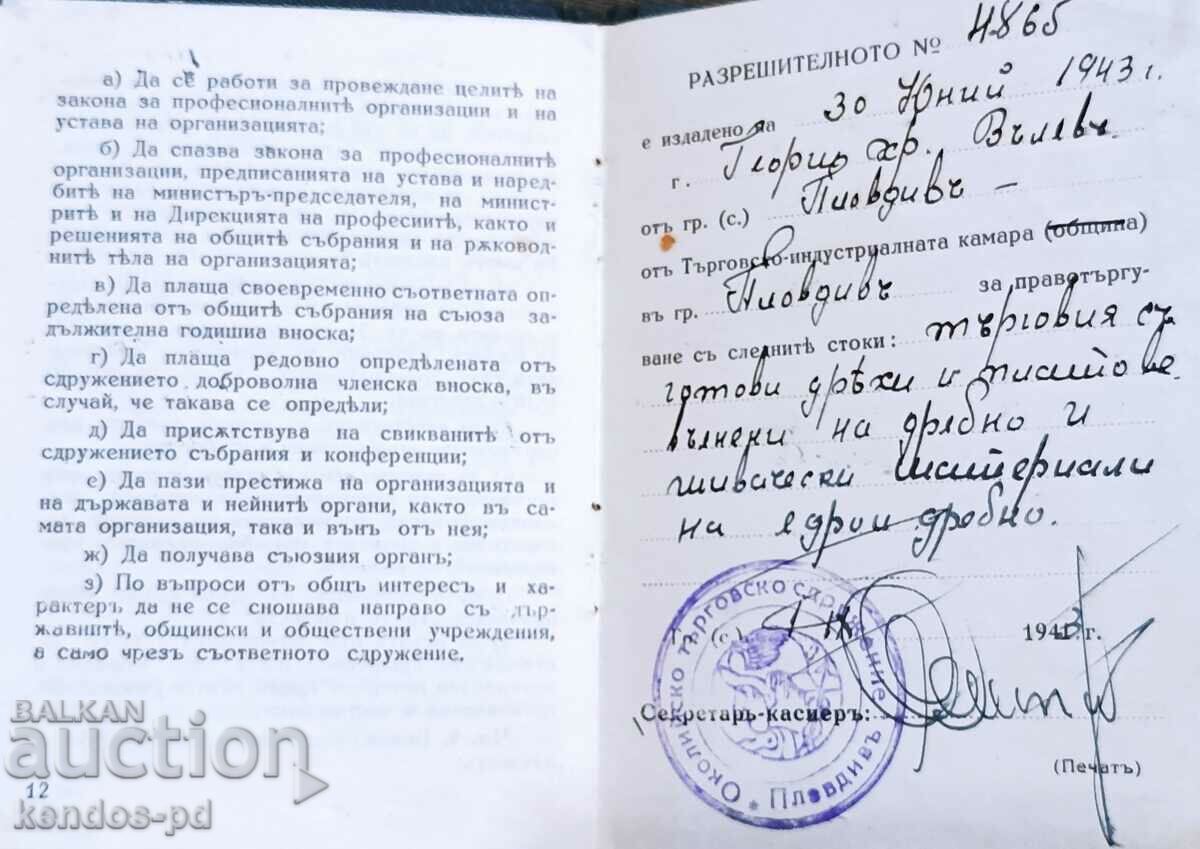 а) Да се работи за провеждане целитѣ на
закона за професионалнитѣ организации и на
устава на организацията;
б) Да спазва закона за професионалнитѣ
организации, предписанията на устава и наред-
битѣ на министъръ-председателя, на минист-
ритѣ и на Дирекцията на професиитѣ, както и
решенията на общитѣ събрания и на рѫковод-
нитѣ тѣла на организацията;
в) Да плаща своевременно съответната оп-
редѣлена отъ общитѣ събрания на съюза за-
дължителна годишна вноска;
г) Да плаща редовно опредѣлената отъ
сдружението доброволна членска вноска, въ
случай, че такава се опредѣли;
д) Да присѫтствува на свикванитѣ отъ
сдружението събрания и конференции;
е) Да пази престижа на организацията и
на държавата и нейнитѣ органи, както въ са-
мата организация, така и вънъ отъ нея;
ж) Да получава съюзния органъ;
з) По въпроси отъ общъ интересъ и ха-
рактеръ да не се сношава направо съ дър-
жавнитѣ, общински и обществени учреждения,
а само чрезъ съответното сдружение.
12
BALKAN
auction
kendos-pd
РАЗРЕШИТЕЛНОТО № 4865
е издадено на 30 Юний 1943 г.
г. Георги Хр. Вълевъ
отъ гр. (с.) Пловдивъ —
отъ Търговско-индустриалната камара (община)
въ гр. Пловдивъ за правотъргу-
ване съ следнитѣ стоки: търговия съ
готови дрѣхи и платове
вълнени на дребно и
шивачески материали
на едро и дребно.
Гр. (с.) 1943 г.
Секретарь-касиеръ:
(Печатъ)
Околийско търговско сдружение * Пловдивъ *